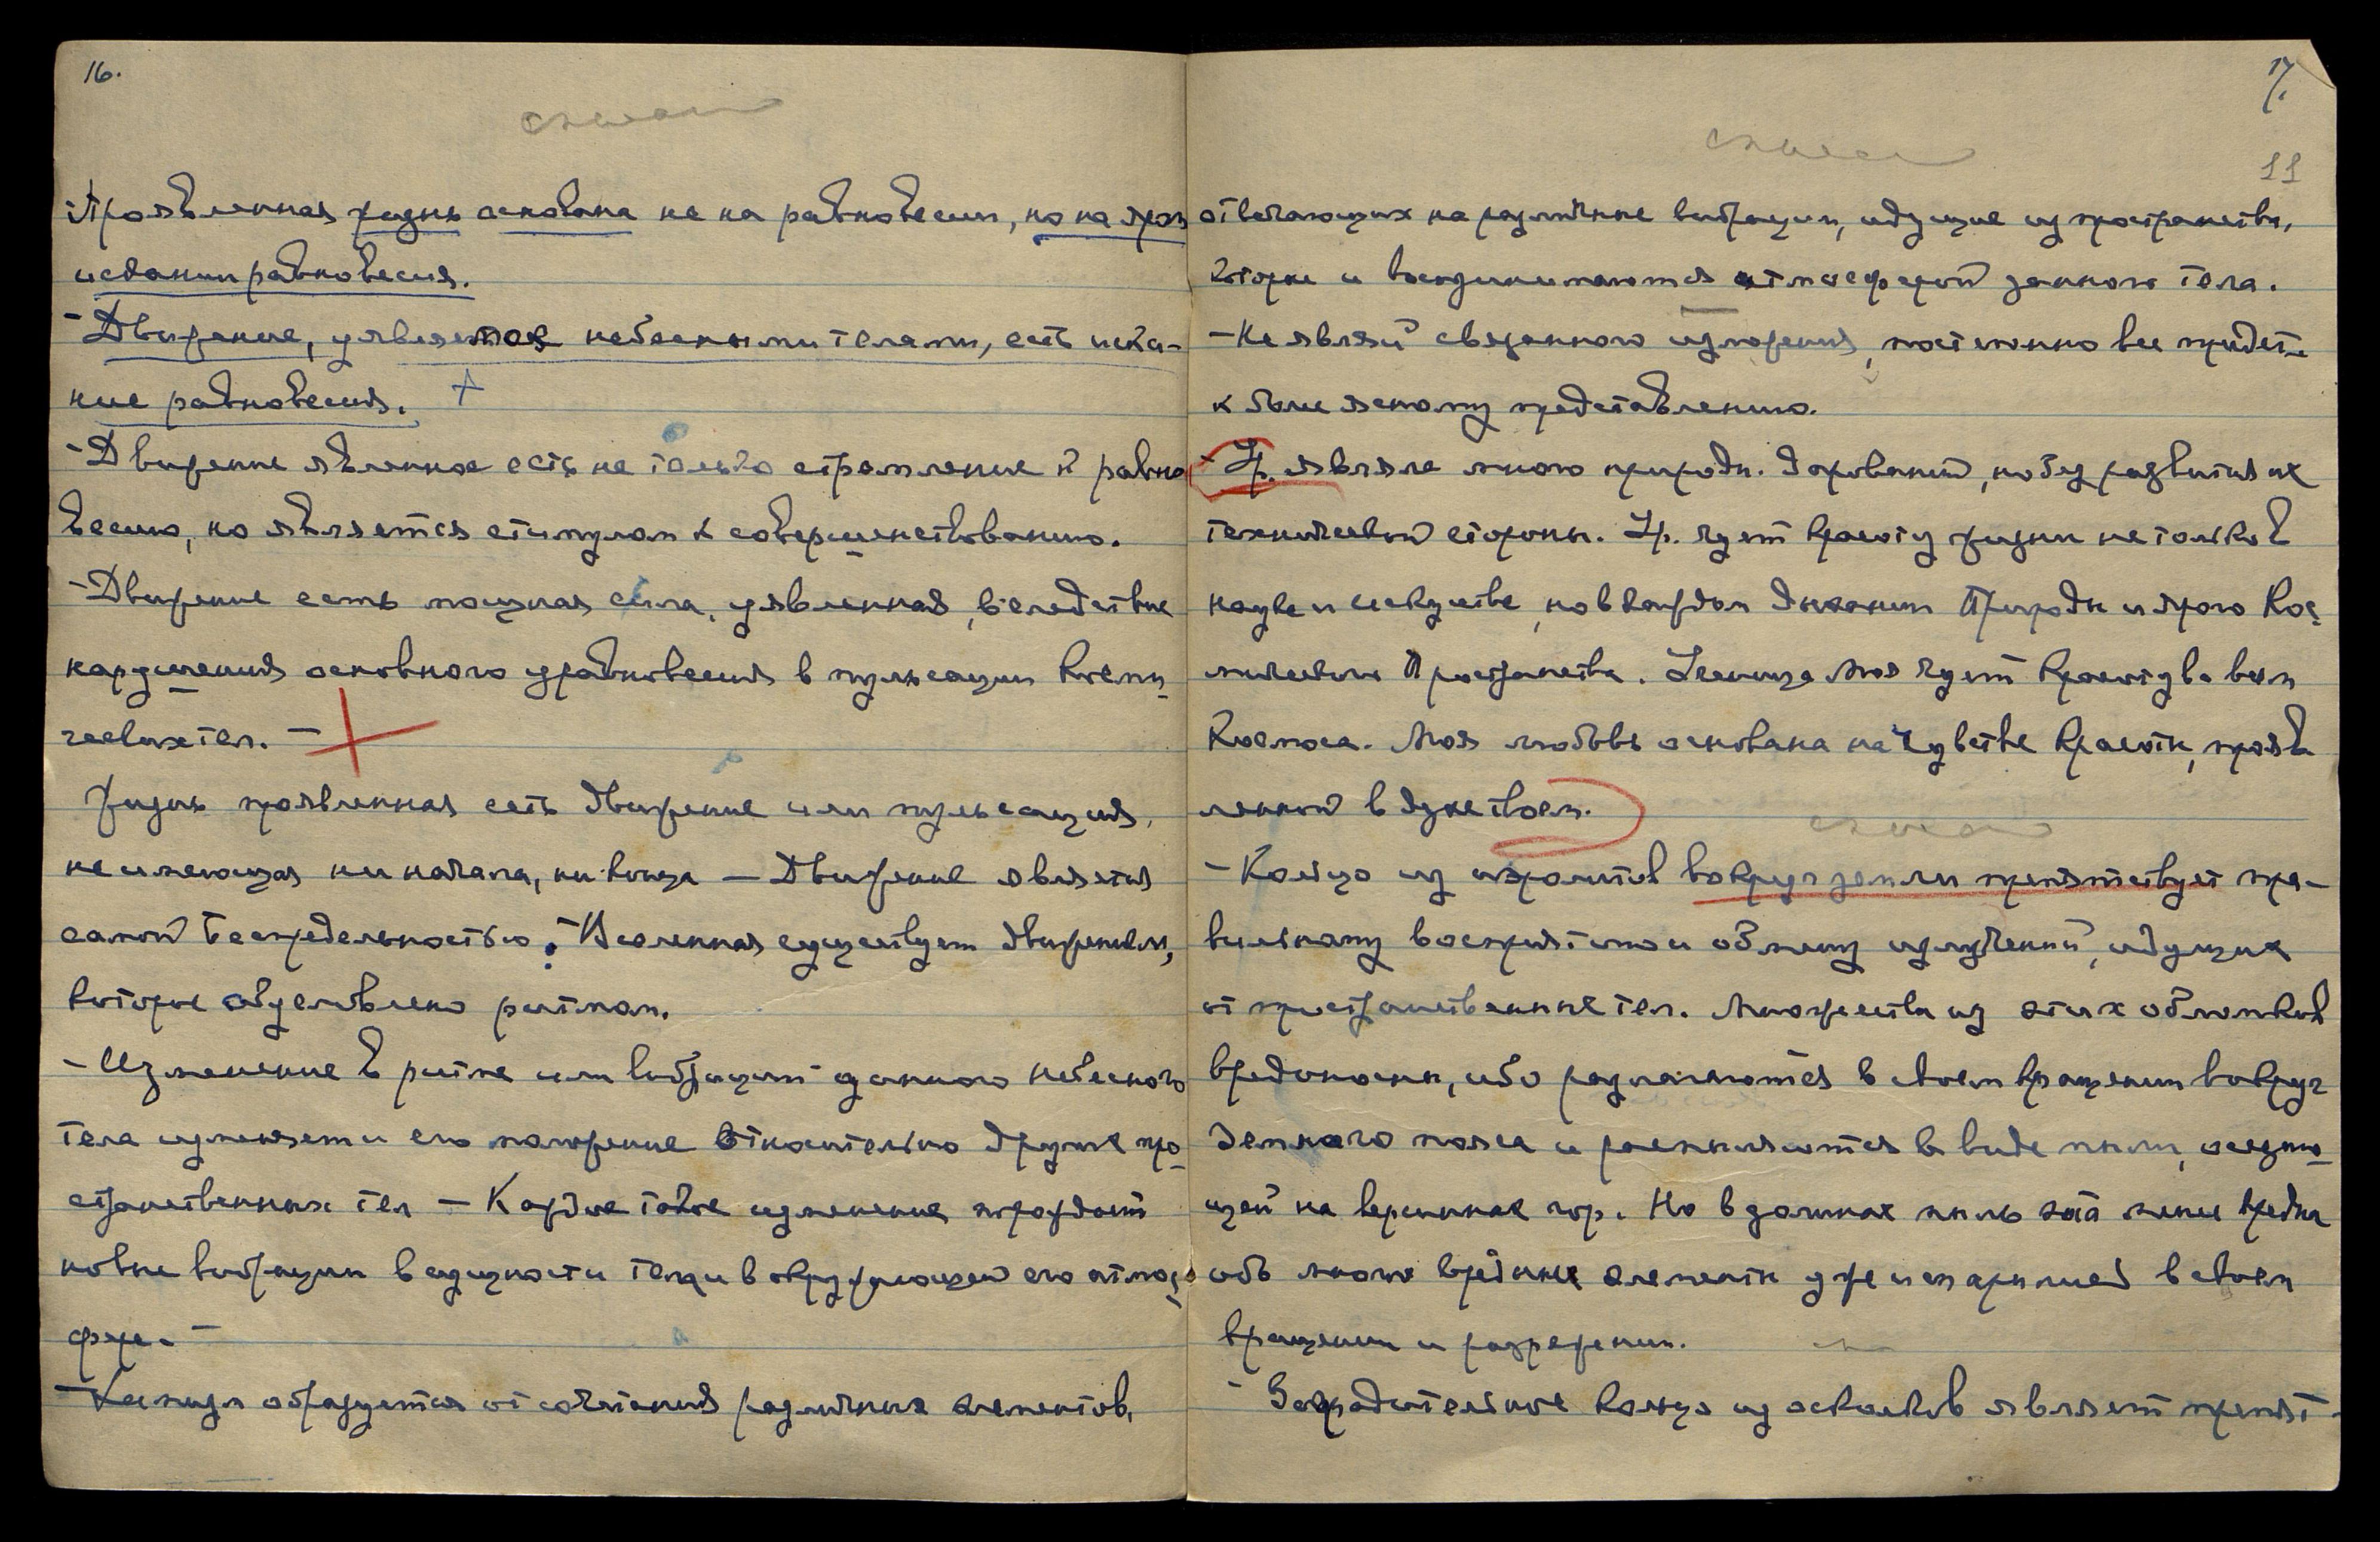 16.
Проявленная жизнь основана не на равновесии, но на про-
искании равновесия.
- Движение, уявляемое небесными телами, есть иска-
ние равновесия. +
- Движение явленное есть не только стремление к равно
весию, но является стимулом к совершенствованию.
- Движение есть мощная сила, уявленная, вследствие
нарушения основного уравновесия в пульсации косми-
ческих тел. -
Жизнь проявленная есть движение или пульсация,
не имеющая ни начала, ни конца - Движение является
самой Беспредельностью. - Вселенная существует движением,
которое обусловлено ритмом.
- Изменение в ритме или вибрации данного небесного
тела изменяет и его положение относительно других про-
странственных тел - Каждое такое изменение порождает
новые вибрации в сущности тела и в окружающей его атмос-
фере. -
- образуется от сочетания различных элементов,
17.
11
отвечающих на различные вибрации, идущие из пространства,
которые и воспринимаются атмосферой данного тела.
- Не являй связанного изложения, постепенно все придет
к более ясному представлению.
- Ур. являла много природн. дарований, но без развития их
технической стороны. Ур. чует красоту жизни не только в
науке и искусстве, но в каждом дыхании Природы и всего Кос-
мического Пространства. моя чует красоту во всем
Космосе. Моя любовь основана на чувстве красоты, прояв
ленной в духе твоем.
- Кольцо из вокруг земли препятствует пра-
вильному восприятию и обмену излучений, идущих
от пространственных тел. Множества из этих обломков
вредоносны, ибо разлагаются в своем вращении вокруг
Земного пояса и распыляются в виде пыли, оседаю-
щей на вершинах гор. Но в долинах пыль эта менее вредна
ибо много вредных элементов уже испарились в своем
вращении и разрежении.
- Заградительное кольцо из осколков являет препят-